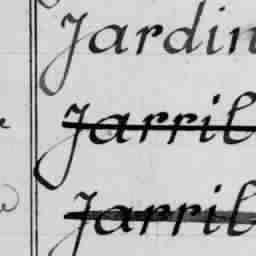 Jardin
Jarril
Jarril